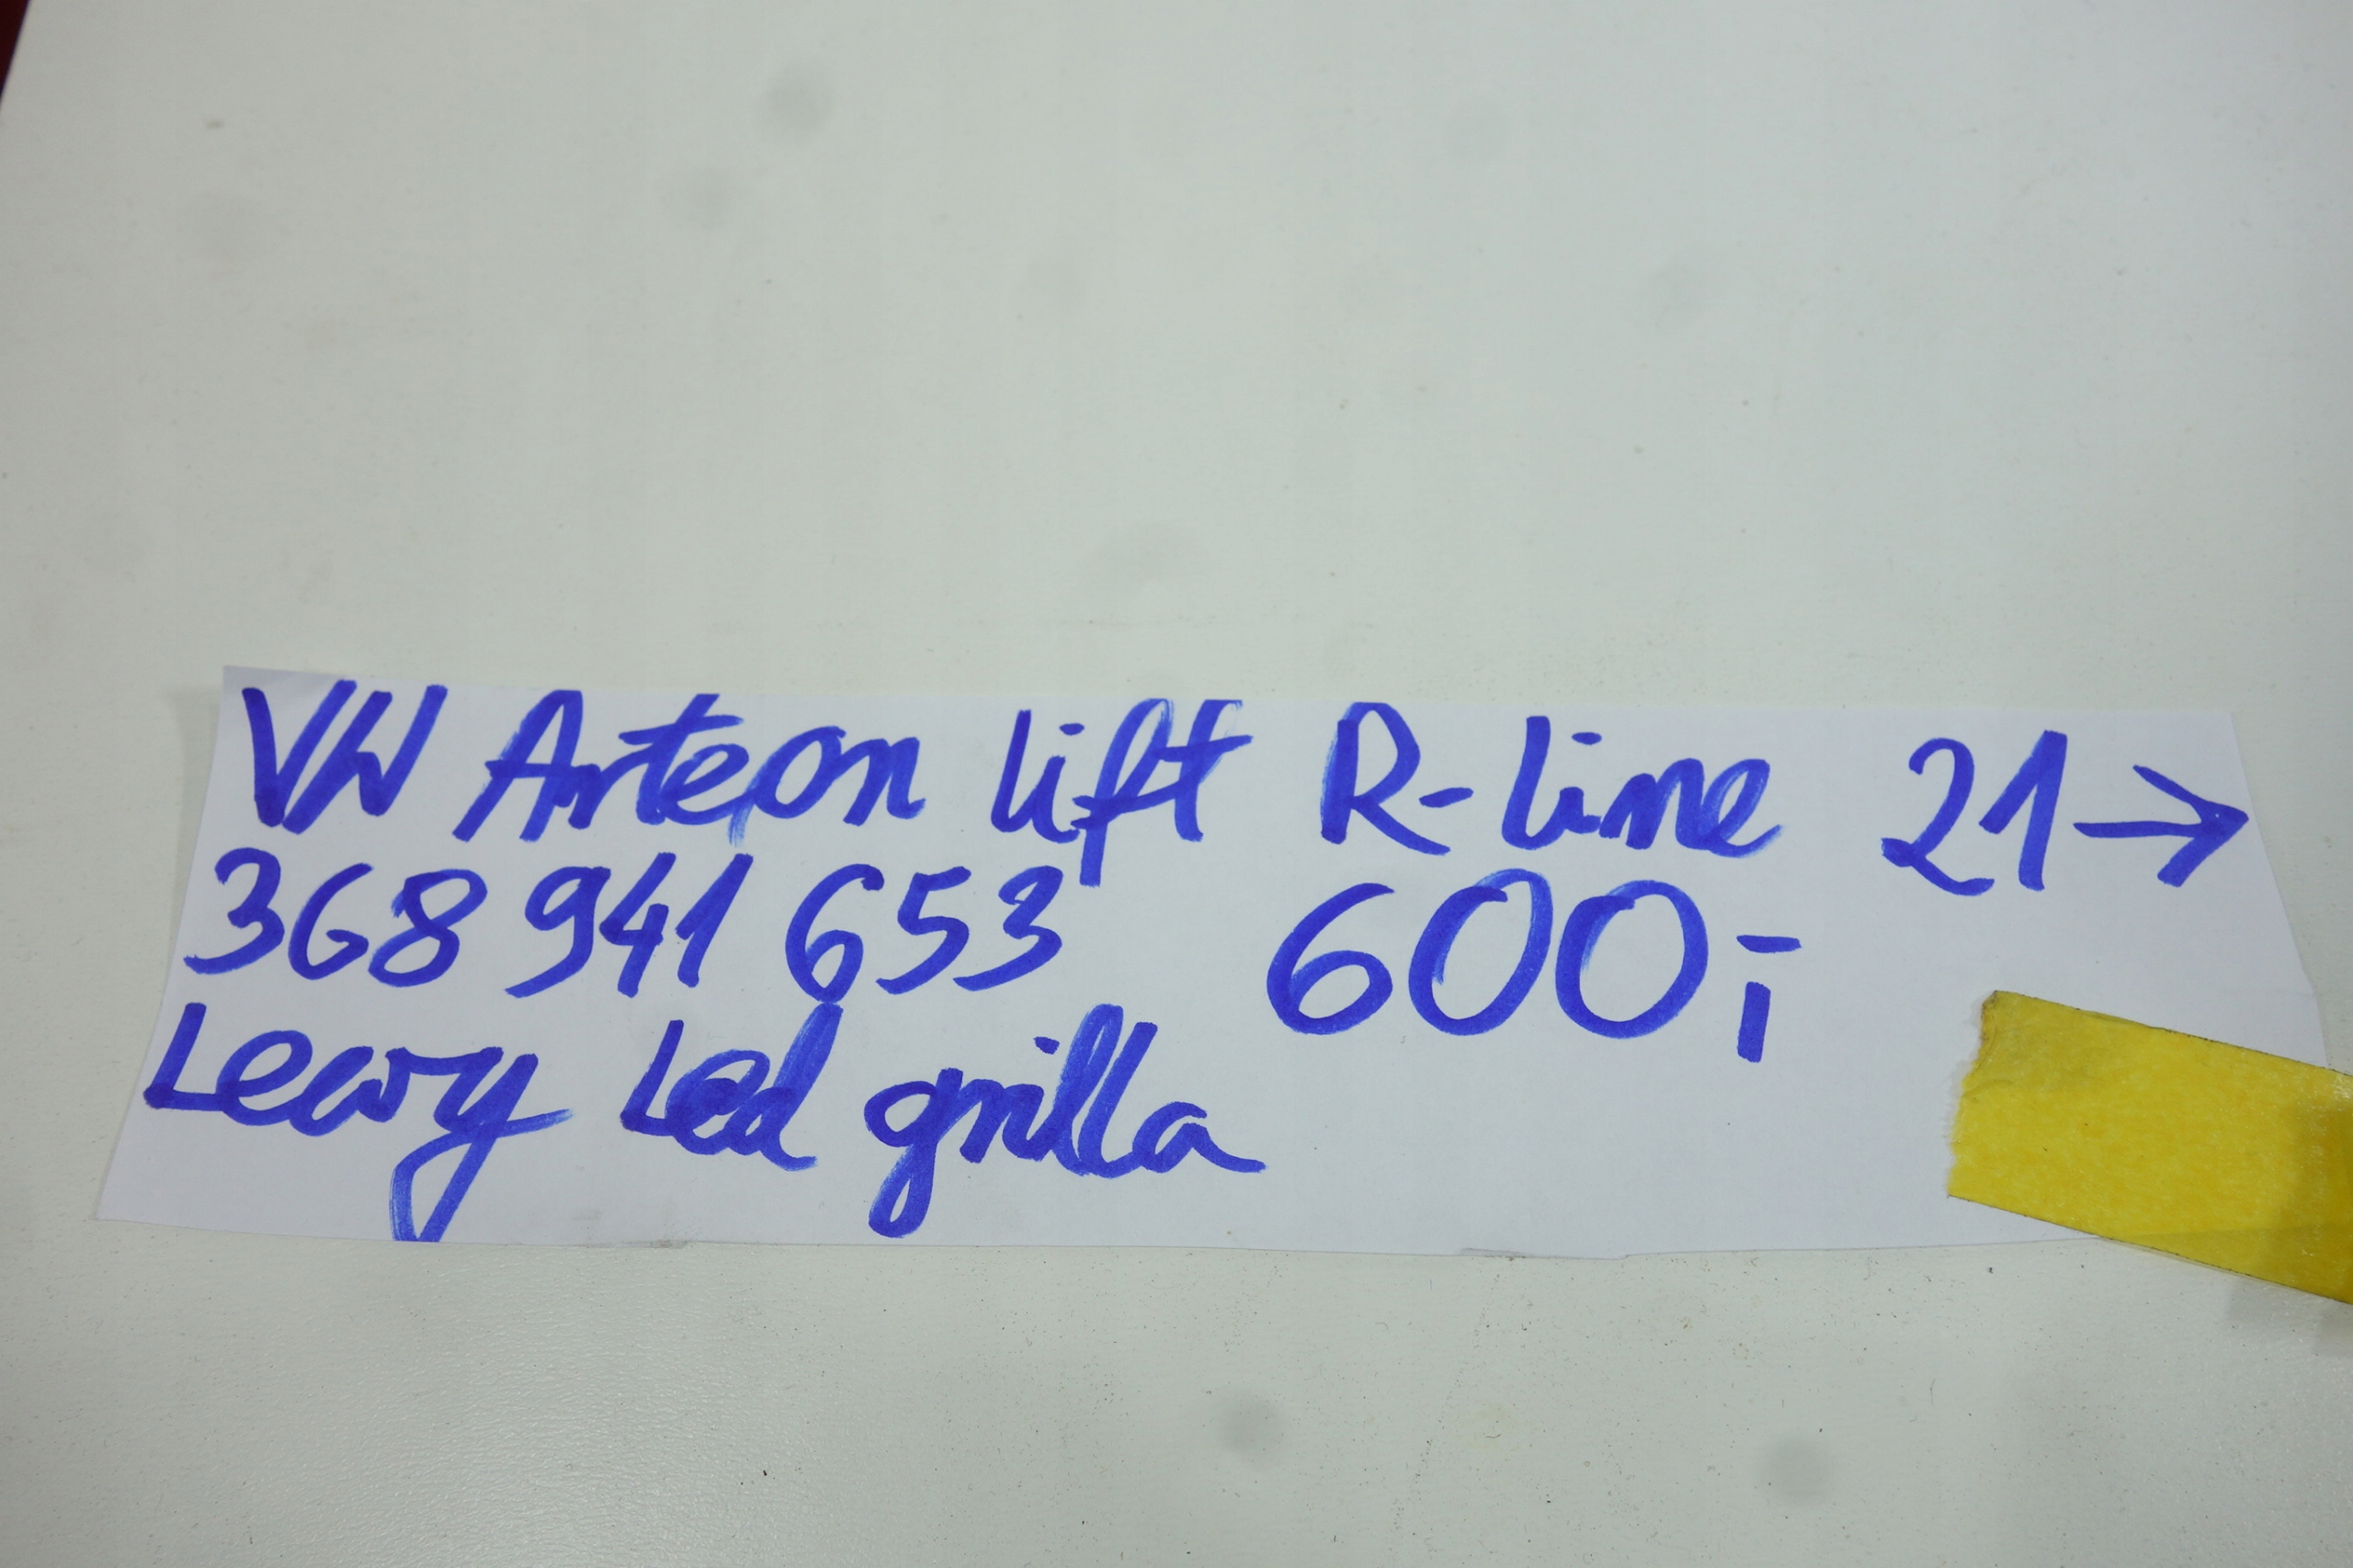 VW Arteon lift R-line 21→
368 941 653 600,-
Lewy Led grilla